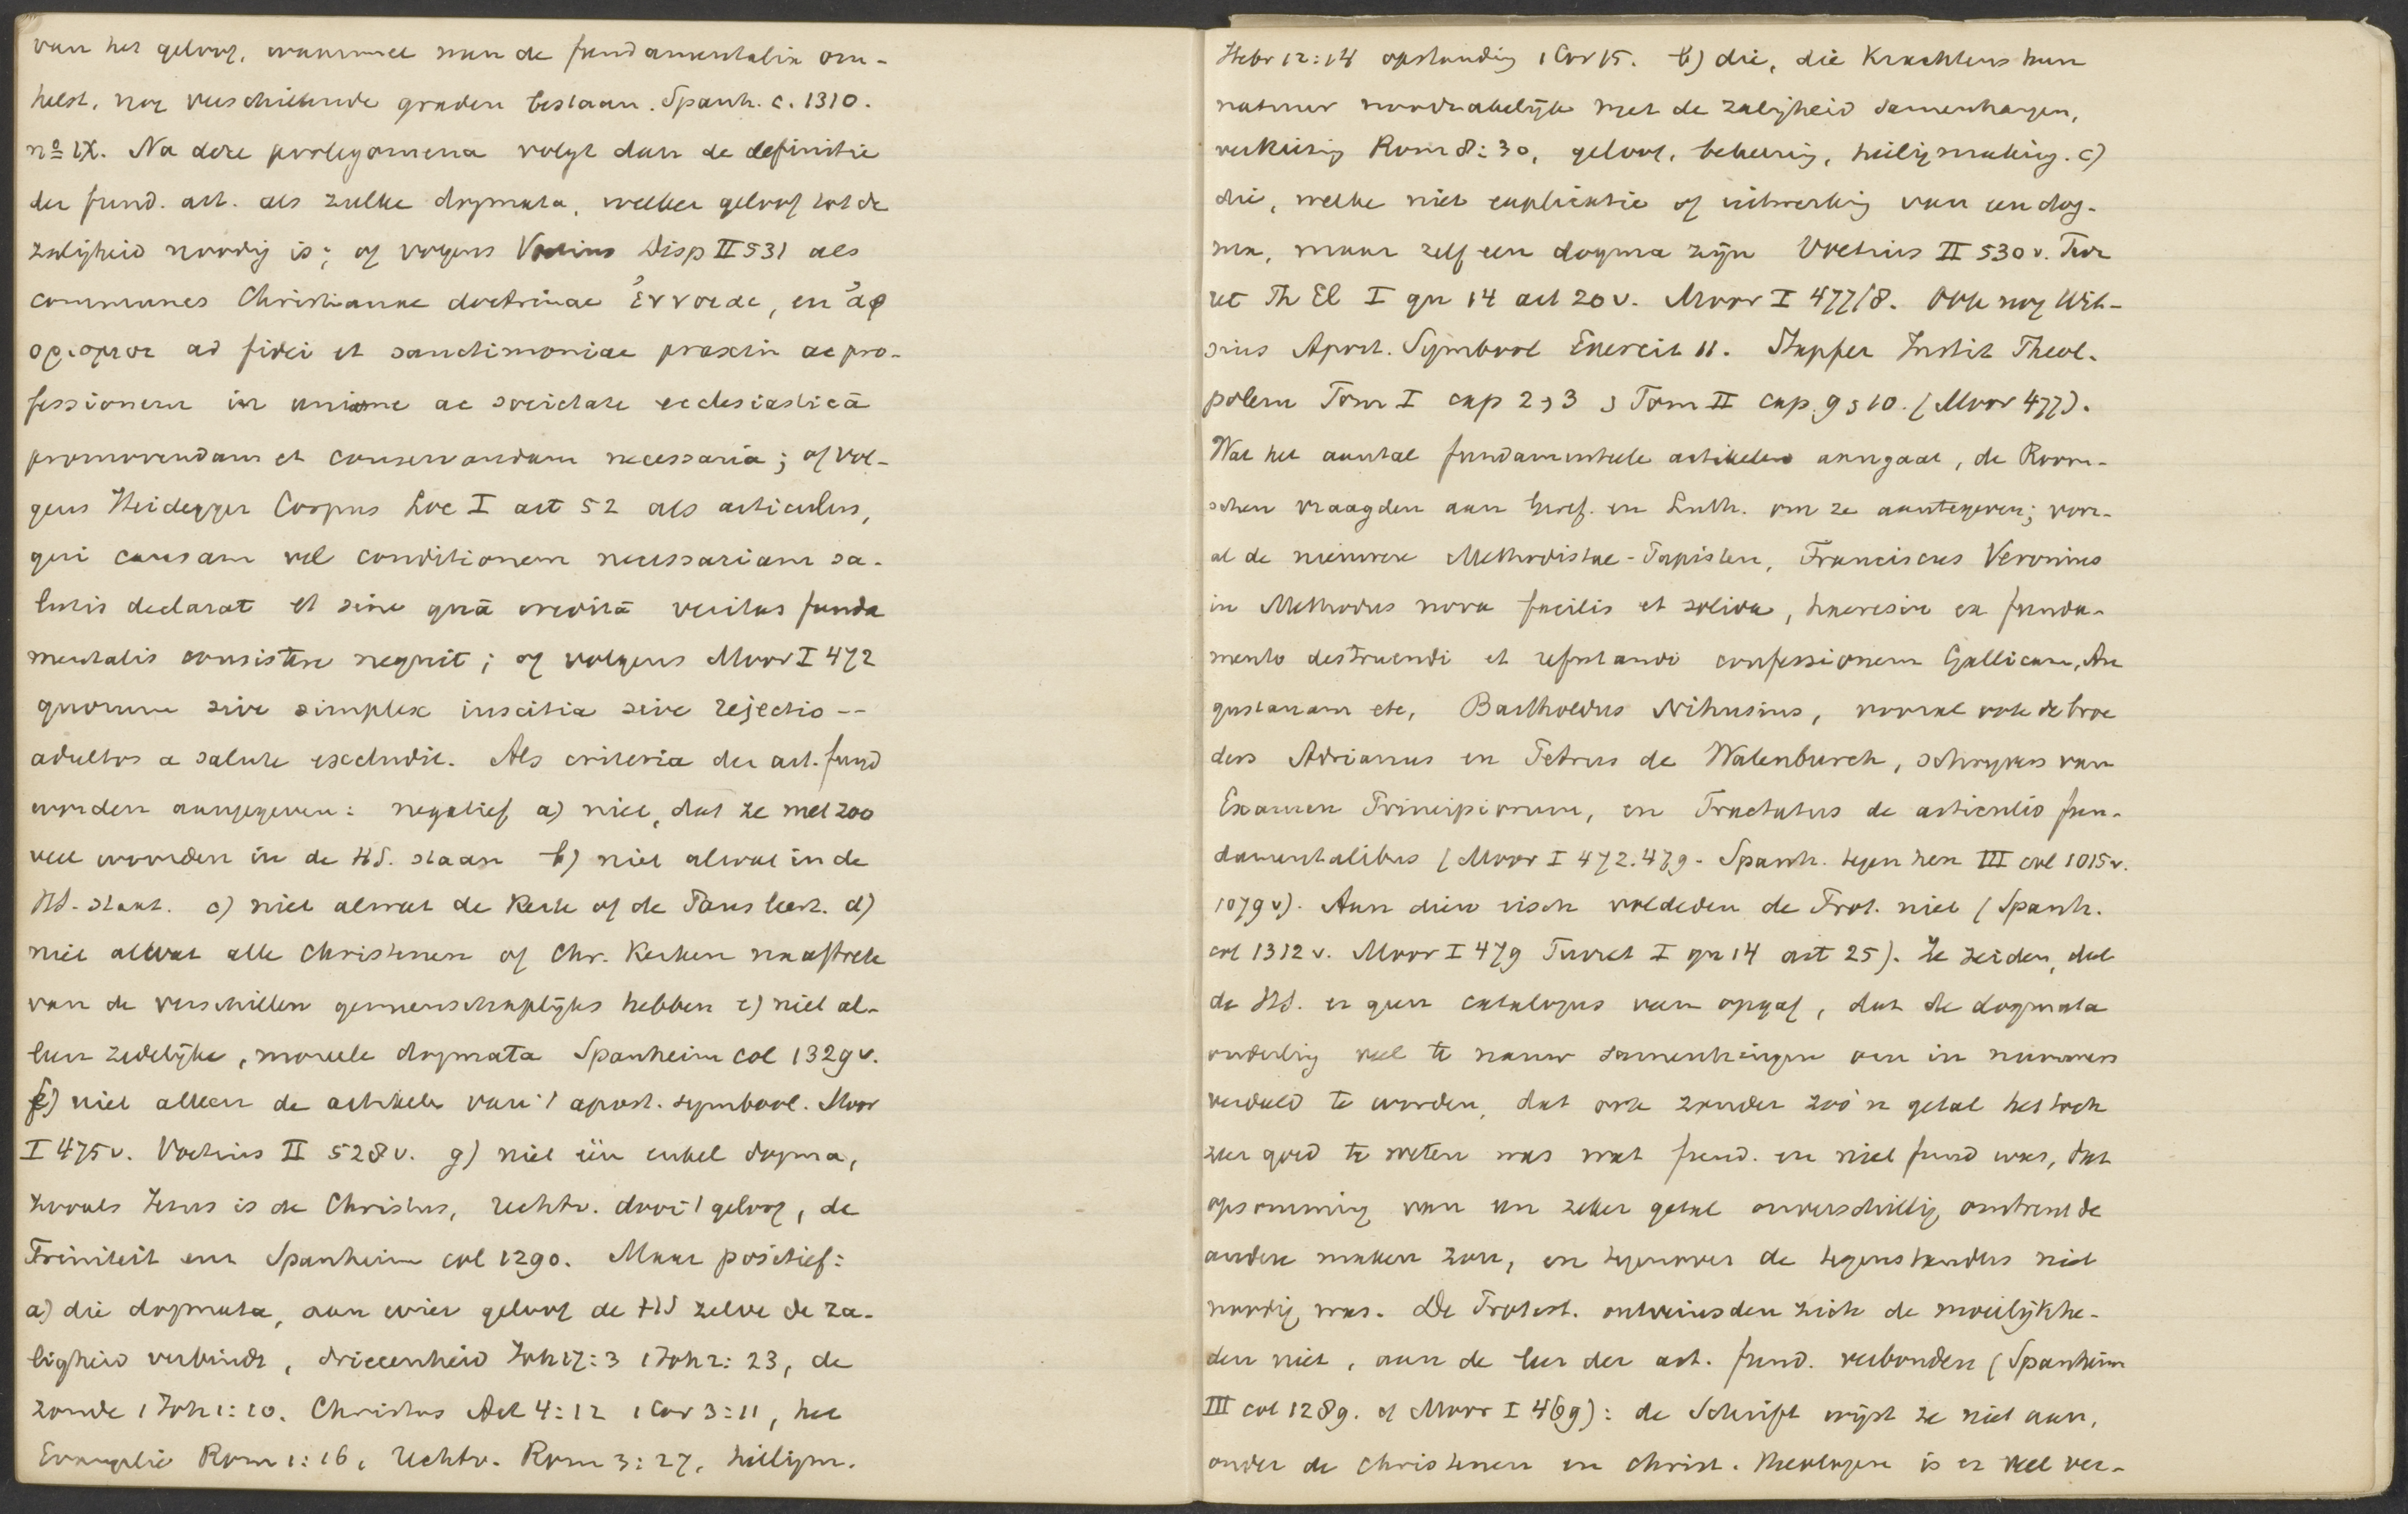 van het geloof, waarmee men de fundamentalia om-
helst, nog verschillende graden bestaan. Spanh. c. 1310.
nº IX. Na deze prolegomena volgt dan de definitie
der fund. art. als zulke dogmata, welker geloof tot de
zaligheid noodig is; of volgens Voetius Disp II 531 als
communes Christianae doctrinae ἔννοιαι, en ἀφ
ορισμοι ad fidei et sanctimoniae praxin ac pro-
fessionem in unione ac societate ecclesiasticâ
promovendam et conservandam necessaria; of vol-
gens Heidegger Corpus Loc I art 52 als articulus,
qui causam vel conditionem necessariam sa-
lutis declarat et sine quâ creditâ veritas funda
mentalis consistere nequit; of volgens Moor I 472
quorum sive simplex inscitia sive rejectio --
adultos a salute excludit. Als criteria der art. fund
worden aangegeven: negatief a) niet, dat ze met zoo
veel woorden in de HS. staan b) niet alwat in de
HS. staat. c) niet alwat de Kerk of de Paus leert. d)
niet alwat alle Christenen of Chr. Kerken na aftrek
van de verschillen gemeenschaplijks hebben e) niet al-
leen zedelijke, moreele dogmata Spanheim col 1329 v.
f) niet alleen de artikels van 't apost. symbool. Moor
I 475 v. Voetius II 528 v. g) niet één enkel dogma,
zooals Jezus is de Christus, rechtv. door 't geloof, de
Triniteit enz Spanheim col 1290. Maar positief:
a) die dogmata, aan wier geloof de HS zelve de za-
ligheid verbindt, drieeenheid Joh 17:3 1 Joh 2:23, de
zonde 1 Joh 1:10. Christus Act 4:12 1 Cor 3:11, het
Evangelie Rom 1:16, rechtv. Rom 3:27, heiligm.
Hebr 12:14 opstanding 1 Cor 15. b) die, die Krachtens hun
natuur noodzakelijk met de zaligheid samenhangen,
verkiezing Rom 8:30, geloof, bekeering, heiligmaking. c)
die, welke niet explicatie of uitwerking van een dog-
ma, maar zelf een dogma zijn Voetius II 530 v. Tur
ret Th El I qu 14 art 20 v. Moor I 477/8. Ook nog Wit-
sius Apost. Symbool Exercit II. Stapfer Instit Theol.
polem Tom I cap 2, 3, Tom II cap. 9, 10. (Moor 477).
Wat het aantal fundamenteele artikelen aangaat, de Room-
schen vraagden aan Geref. en Luth. om ze aantegeven; voor-
al de nieuwere Methodistae-Papisten, Franciscus Veronius
in Methodus nova facilis et solida, haeresin ex funda-
mento destruendi et refutandi confessionem Gallicam, Au
gustanam etc, Bartholdus Nihusius, vooral ook de broe
ders Adrianus en Petrus de Walenburch, schrijvers van
Examen Principiorum, en Tractatus de articulis fun-
damentalibus (Moor I 472. 479. Spanh. tegen hen III col 1015 v.
1079 v). Aan dien eisch voldeden de Prot. niet (Spanh.
col 1312 v. Moor I 479 Turret I qu 14 art 25). Ze zeiden, dat
de HS. er geen catalogus van opgaf, dat de dogmata
onderling veel te nauw samenhingen om in nummers
verdeeld te worden, dat ook zonder zoo'n getal het toch
zeer goed te weten was wat fund. en niet fund was, dat
opsomming van een zeker getal onverschillig omtrent de
andere maken zou, en tegenover de tegenstanders niet
noodig was. De Protest. ontveinsden zich de moeilijkhe-
den niet, aan de leer der art. fund. verbonden (Spanheim
III col 1289. cf Moor I 469): de Schrift wijst ze niet aan,
onder de Christenen en christ. theologen is er veel ver-